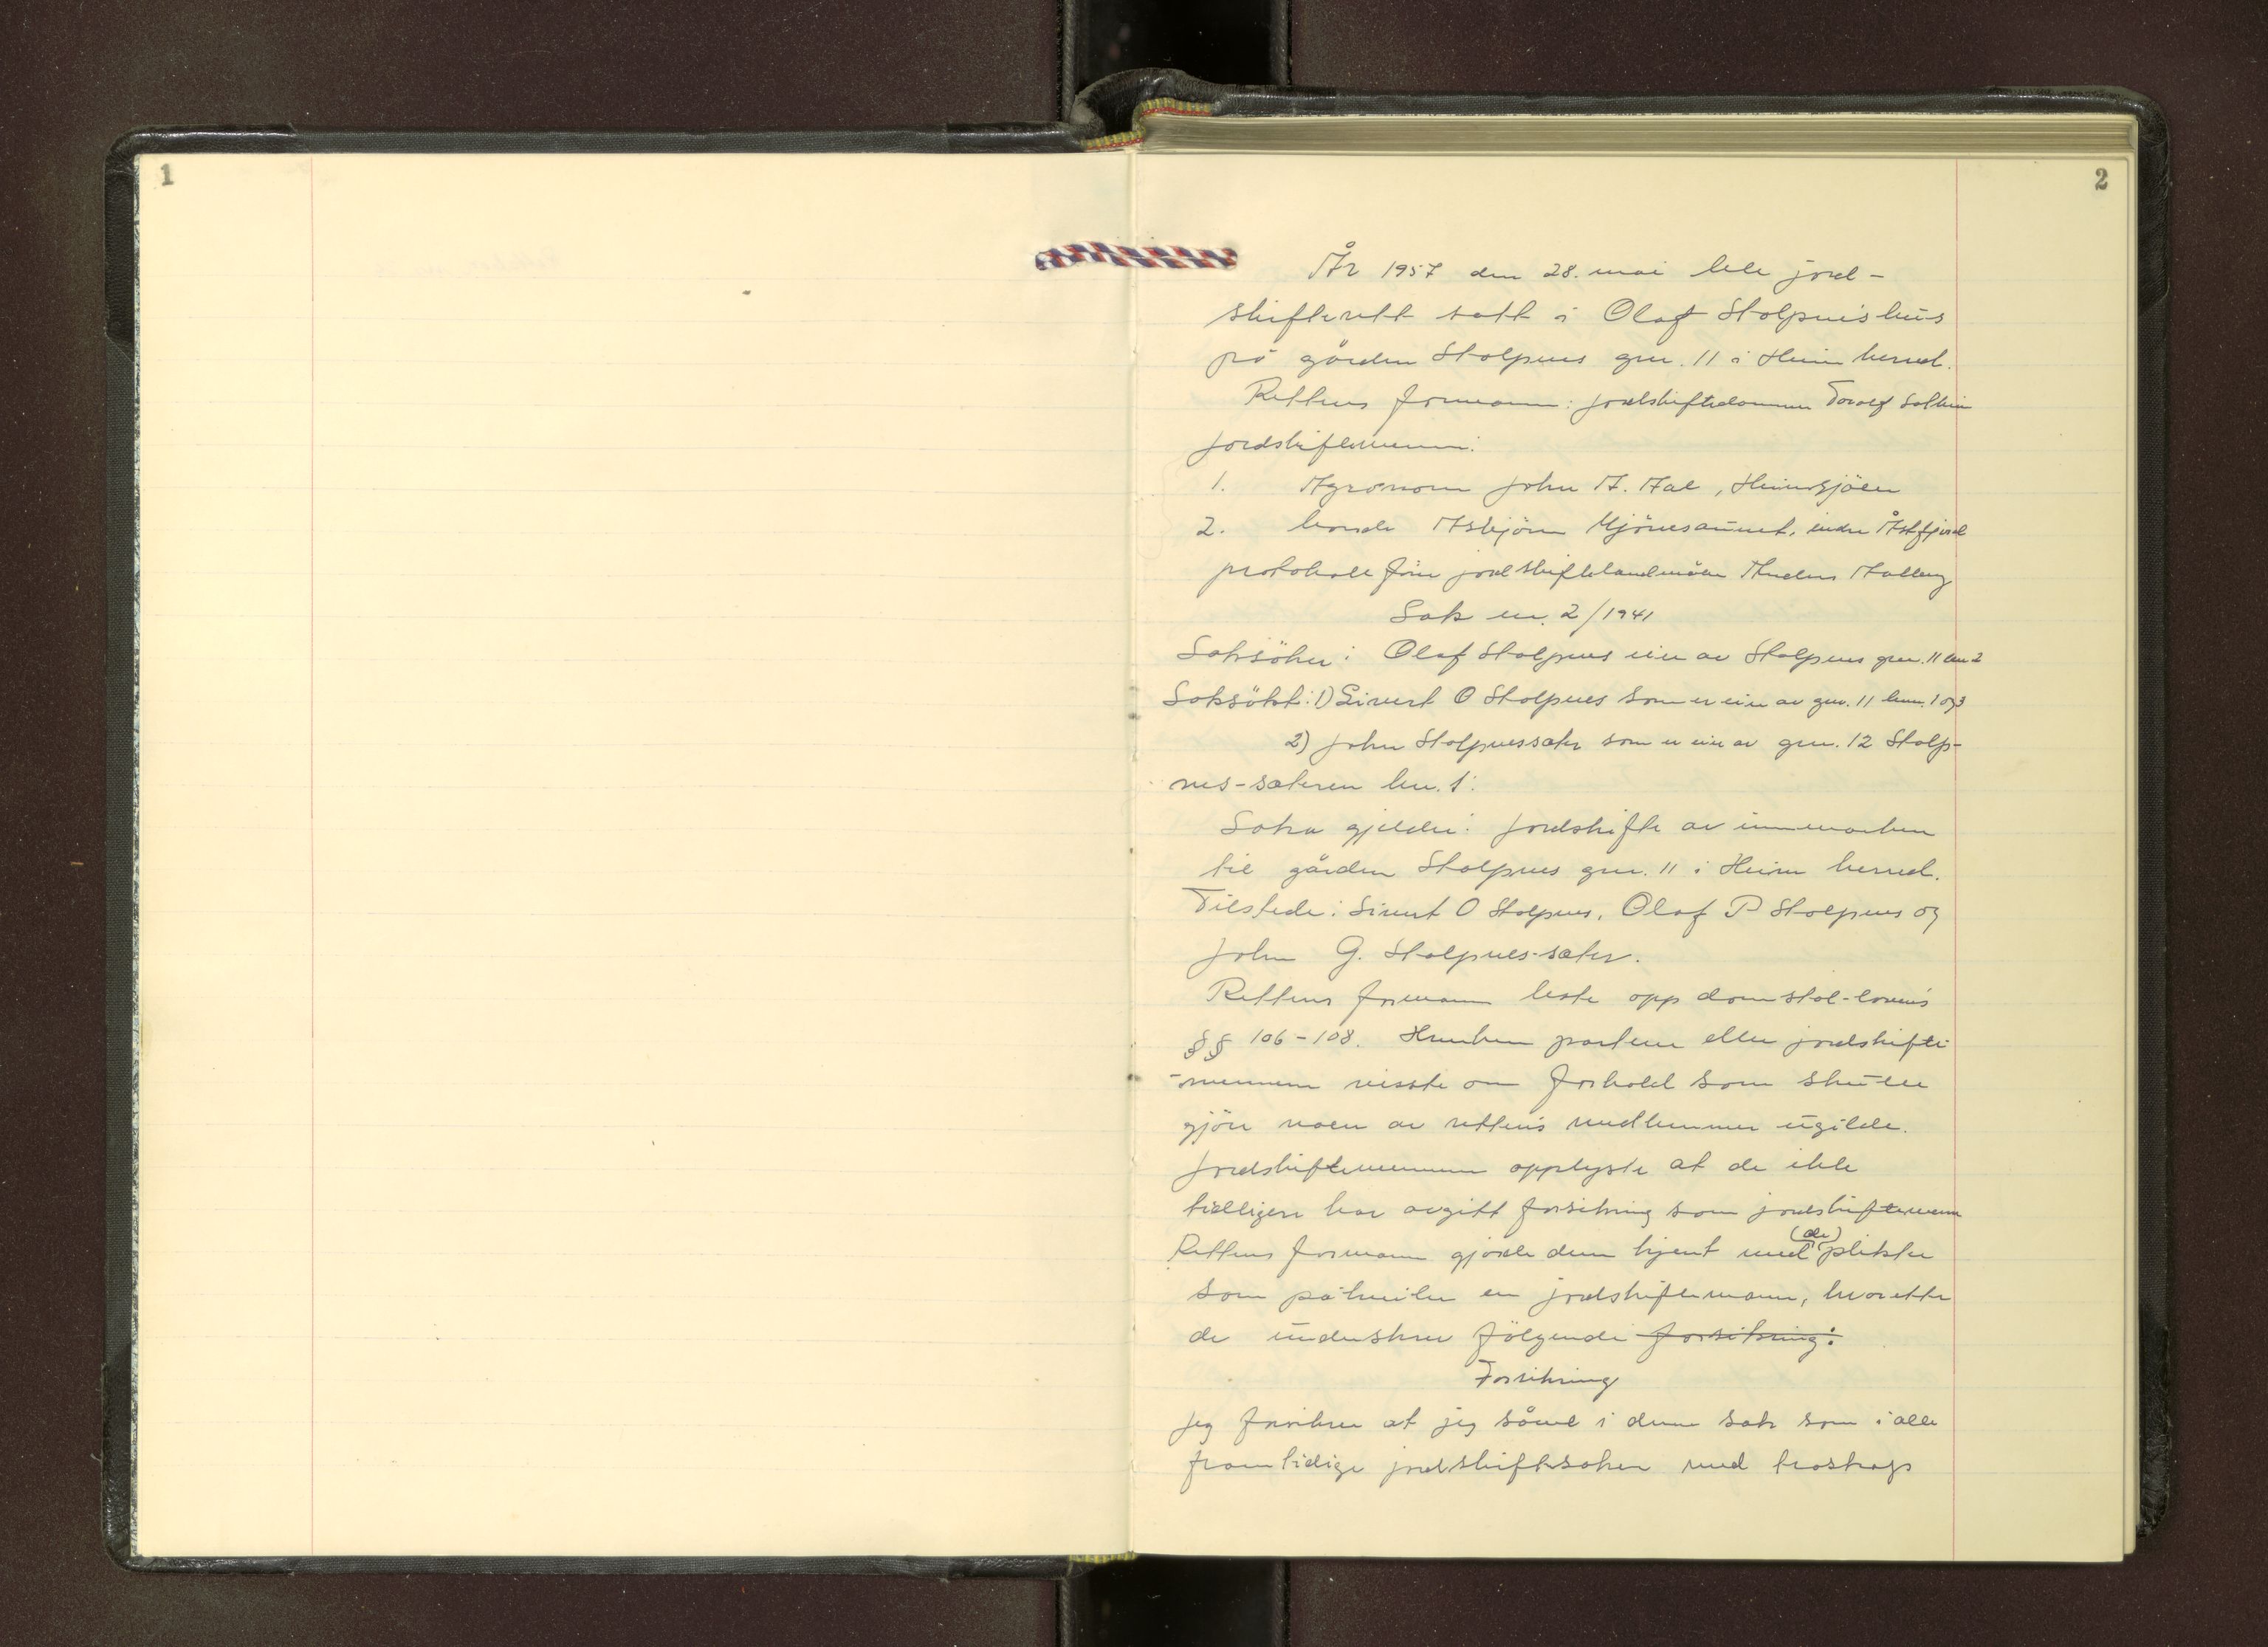 1
2
År 1957 den 28. mai ble jord-
skifterett satt i Olaf Stolpnes hus
på gården Stolpnes gnr. 11 i Heim herred.
Rettens formann: jordskiftedommer Torolf
jordskiftemenn:
1. Agronom John A. Aae, Heimsjöen
2. bonde Asbjörn Mjönesaunet, indre Åstfjord
protokollförer jordskiftelandmåler Anders
Sak nr. 2/1941
Saksöker: Olaf Stolpnes eier av Stolpnes gnr. 11 bnr 2
Saksökt: 1) Sivert O Stolpnes som er eier av gnr. 11 bnr. 1 og 3
2) John Stolpnessæter som er eier av gnr. 12 Stolp-
nes-sæteren bnr. 1.
Saka gjelder: jordskifte av innmarken
til gården Stolpnes gnr. 11 i Heim herred.
Tilstede: Sivert O Stolpnes, Olaf P Stolpnes og
John G. Stolpnes-sæter.
Rettens formann leste opp domstol-lovens
§§ 106-108. Hverken partene eller jordskifte-
-mennene visste om forhold som skulle
gjöre noen av rettens medlemmer ugilde.
Jordskiftemennene opplyste at de ikke
tidligere har avgitt forsikring som jordskiftemenn
Rettens formann gjorde dem kjent med (de) plikter
som påhviler en jordskiftemann, hvoretter
de underskrev fölgende forsikring:
Forsikring
Jeg forsikrer at jeg såvel i denne sak som i alle
framtidige jordskiftesaker med troskap